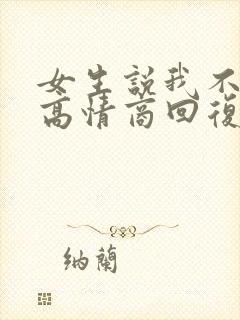 女生説我不
高情商回復
納蘭